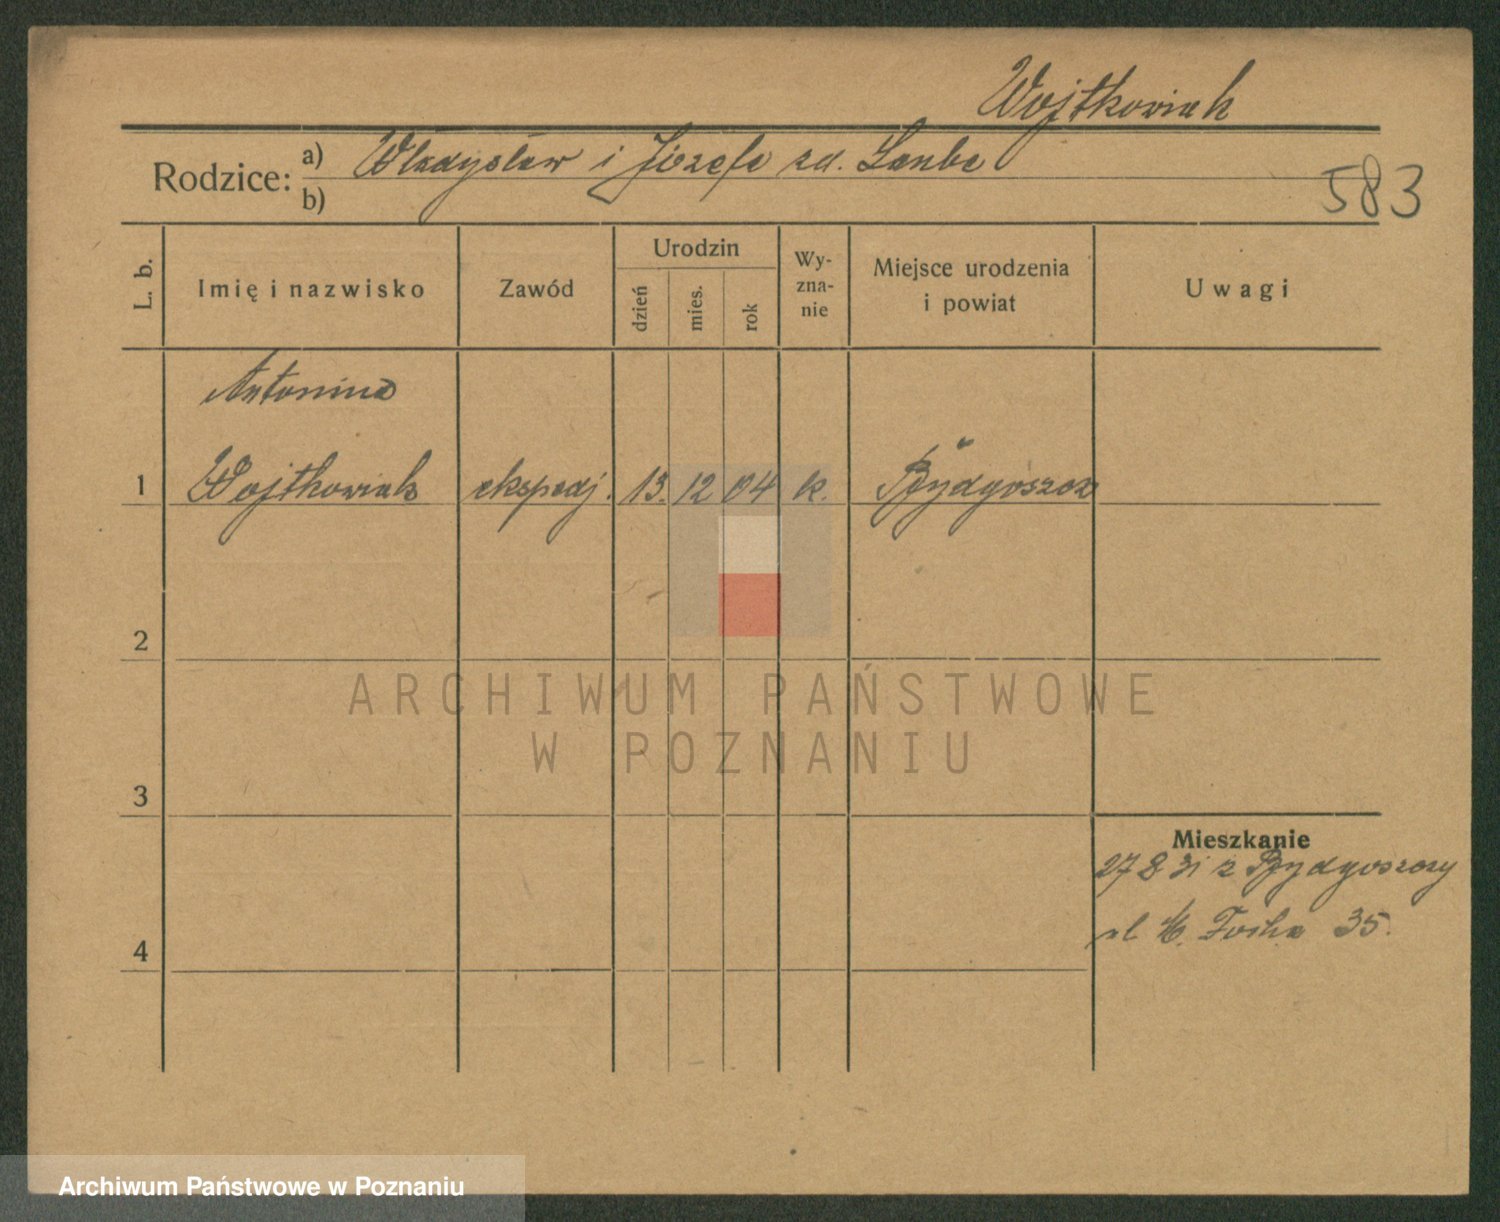 Wojtkowiak
Rodzice: a) Władysław i Józefa zd. Laube
b)
583
L. b.
Imię i nazwisko
Zawód
Urodzin
dzień
mies.
rok
Wy-
zna-
nie
Miejsce urodzenia
i powiat
Uwagi
Antonina
1 Wojtkowiak ekspedj. 13. 12 04 k. Bydgoszcz
2
3
4
Mieszkanie
27 8 31 z Bydgoszczy
ul M. Focha 35.
ARCHIWUM PAŃSTWOWE
W POZNANIU
Archiwum Państwowe w Poznaniu